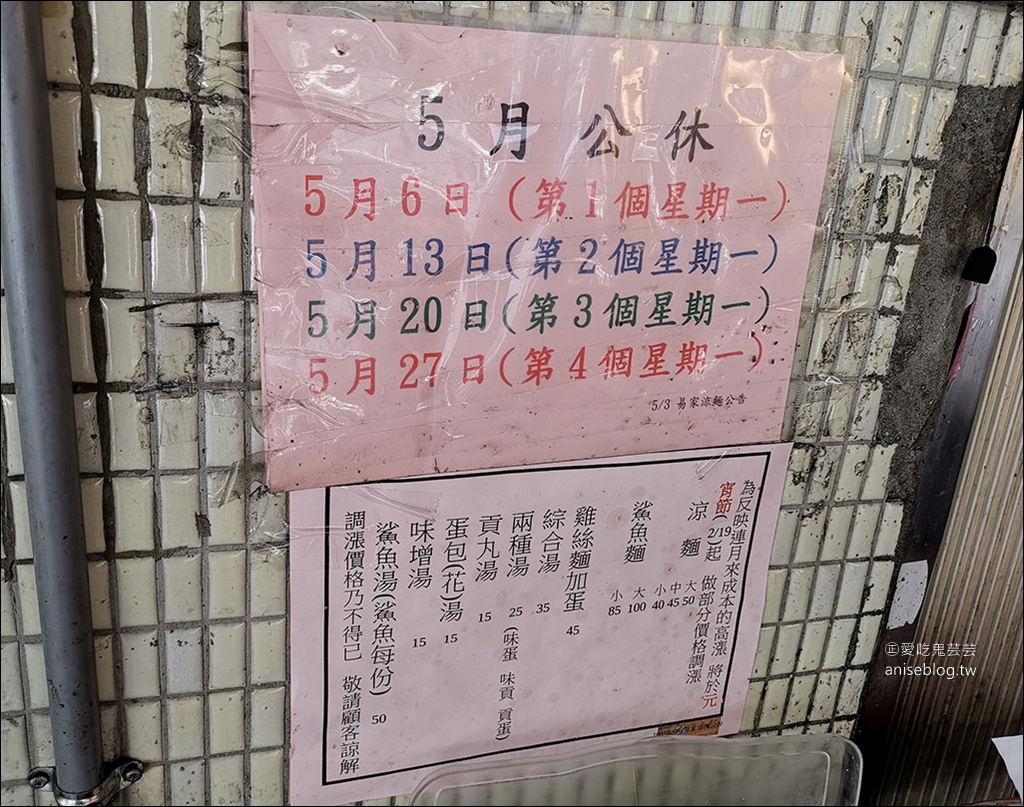 5月公休
5月6日（第1個星期一）
5月13日（第2個星期一）
5月20日（第3個星期一）
5月27日（第4個星期一）
5/3 易家涼麵公告
為反映連月來成本的高漲 將於元
宵節(2/19)起 做部分價格調漲
涼麵 大50 中45 小40
鯊魚麵 大100 小85
雞絲麵加蛋 45
綜合湯 35
兩種湯 25 (味蛋 味貢 貢蛋)
貢丸湯 15
蛋包(花)湯 15
味增湯 15
鯊魚湯(鯊魚每份) 50
調漲價格乃不得已 敬請顧客諒解
愛吃鬼芸芸
aniseblog.tw